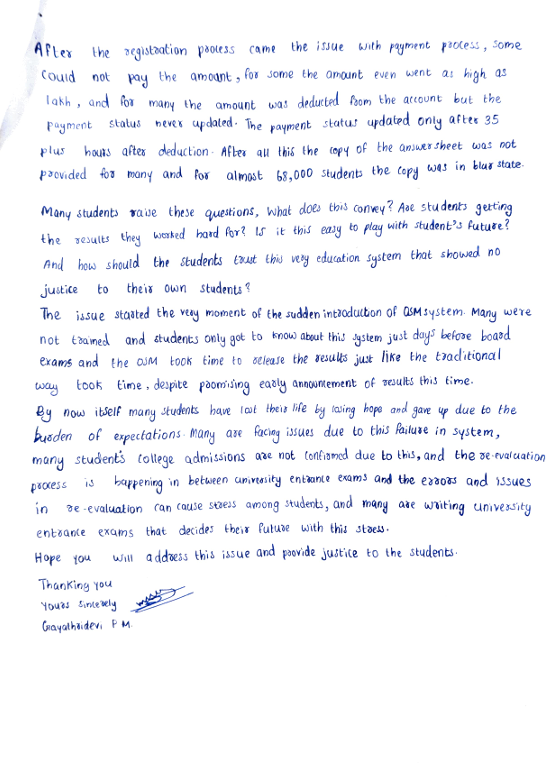 After the registration process came the issue with payment process, some
could not pay the amount, for some the amount even went as high as
lakh, and for many the amount was deducted from the account but the
payment status never updated. The payment status updated only after 35
plus hours after deduction. After all this the copy of the answersheet was not
provided for many and for almost 68,000 students the copy was in blur state.
Many students raise these questions, what does this convey? Are students getting
the results they worked hard for? Is it this easy to play with student's future?
And how should the students trust this very education system that showed no
justice to their own students?
The issue started the very moment of the sudden introduction of OSM system. Many were
not trained and students only got to know about this system just days before board
exams and the OSM took time to release the results just like the traditional
way took time, despite promising early announcement of results this time.
By now itself many students have lost their life by losing hope and gave up due to the
burden of expectations. Many are facing issues due to this failure in system,
many student's college admissions are not confirmed due to this, and the re-evaluation
process is happening in between university entrance exams and the errors and issues
in re-evaluation can cause stress among students, and many are writing university
entrance exams that decides their future with this stress.
Hope you will address this issue and provide justice to the students.
Thanking you
Yours sincerely
Gayathridevi P M.